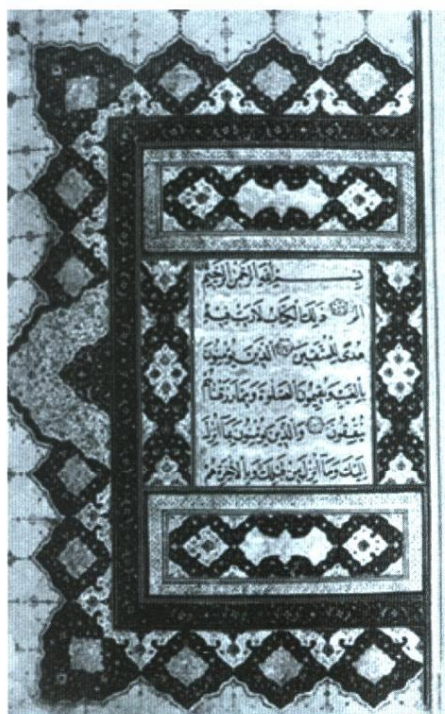 بسم الله الرحمن الرحيم
الم ذلك الكتاب لا ريب فيه
هدى للمتقين الذين يؤمنون
بالغيب ويقيمون الصلوة ومما رزقناهم
ينفقون والذين يؤمنون بما أنزل
إليك وما أنزل من قبلك وبالآخرة هم